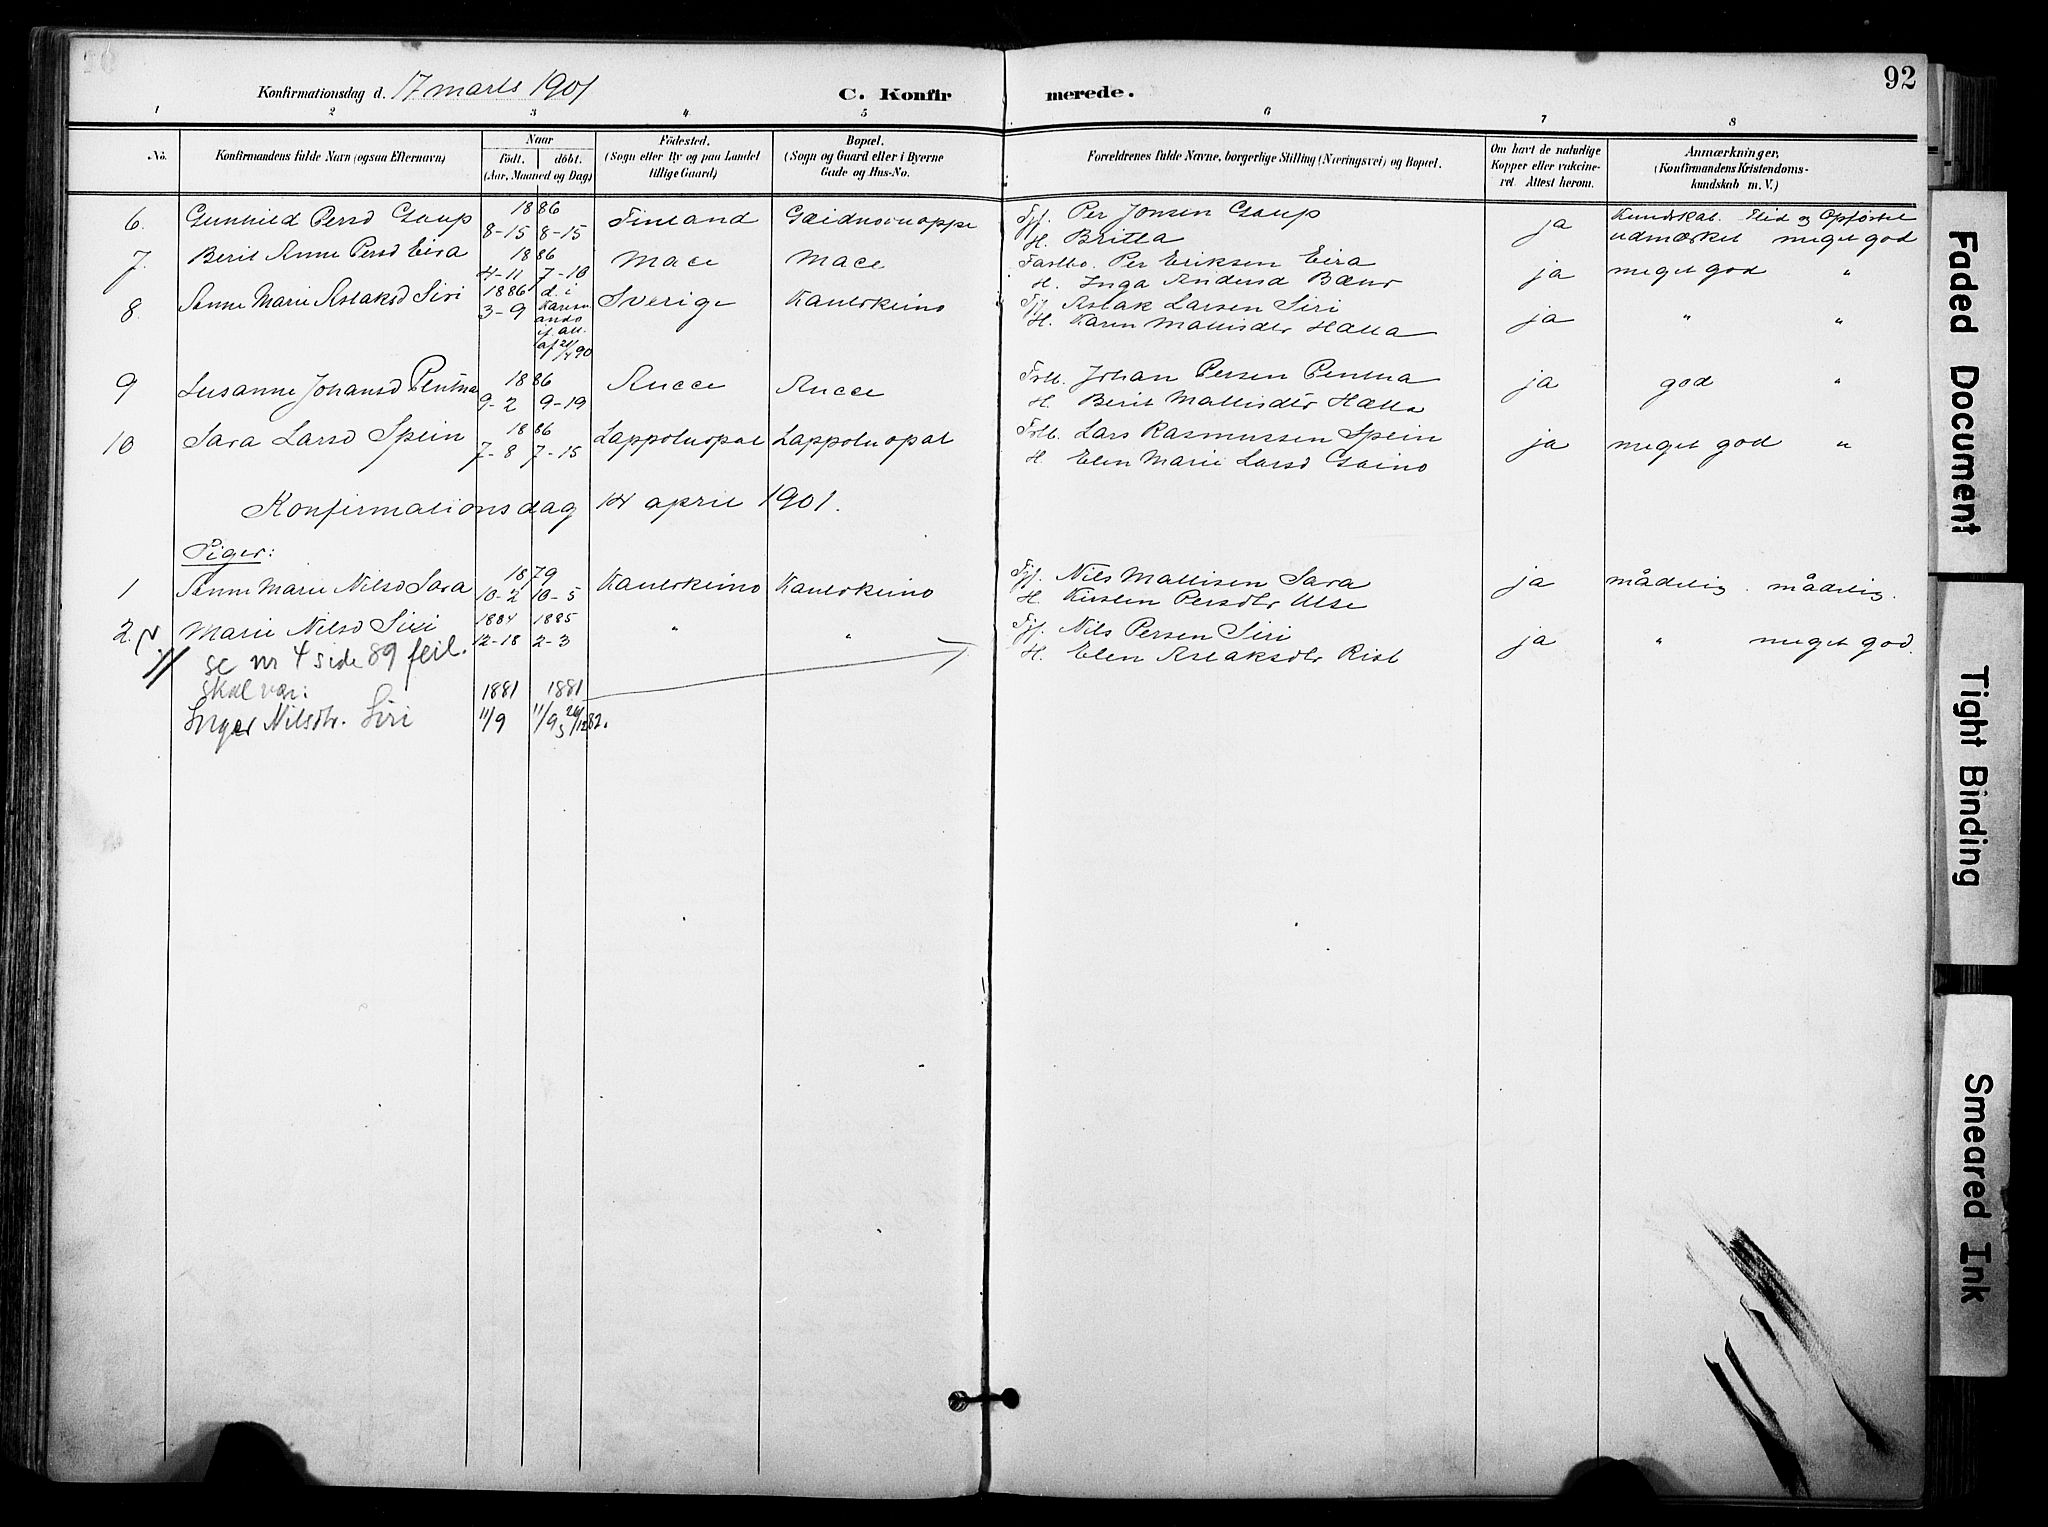 Konfirmationsdag d. 17 marts 1901 C. Konfirmerede. 92
1 2 3 4 5 6 7 8
No. Konfirmandens fulde Navn (ogsaa Efternavn) Naar født. døbt. (Aar, Maaned og Dag) Fødested. (Sogn eller By og paa Landet tillige Gaard) Bopæl. (Sogn og Gaard eller i Byerne Gade og Hus-No. Forældrenes fulde Navne, borgerlige Stilling (Næringsvei) og Bopæl. Om havt de naturlige Kopper eller vakcineret. Attest herom. Anmærkninger. (Konfirmandens Kristendomskundskab m. V.)
Kundskab. Flid og Opførsel
6. Gunhild Persd Gaup 1886 8-15 8-15 Finland Gæidnovuoppe Fjf. Per Jonsen Gaup ja udmærket meget god
H. Britta
7. Berit Anne Persd Eira 1886 4-11 7-10 Mace Mace Fastbo. Per Eriksen Eira ja meget god "
H. Inga Andersd Bær
8. Anne Marie Aslaksd Siri 1886 3-9 d. i Karesuando if att. af 21/4 90 Sverige Kautokeino Fjf. Aslak Larsen Siri ja " "
H. Karen Mathisdtr Hætta
9 Susanne Johansd Pentha 1886 9-2 9-19 Aucce Aucce Fstb. Johan Persen Pentha ja god "
H. Berit Mathisdtr Hætta
10 Sara Larsd Spein 1886 7-8 7-15 Lappoluopal Lappoluopal Fstb. Lars Rasmussen Spein ja meget god "
H. Elen Marie Larsd Gaino
Konfirmationsdag 14 april 1901.
Piger:
1 Anne Marie Nilsd Sara 1879 10-2 10-5 Kautokeino Kautokeino Fjf. Nils Mathisen Sara ja mådelig. mådelig.
H. Kirsten Persdtr Utse
2. Marie Nilsd Siri 1884 12-18 1885 2-3 " " Fjf. Nils Persen Siri ja " meget god.
H. Elen Aslaksdtr Rist
se nr 4 side 89 feil.
skal vær: 1881 1881
Inger Nilsdtr. Siri 11/9 11/9
Faded Document
Tight Binding
Smeared Ink